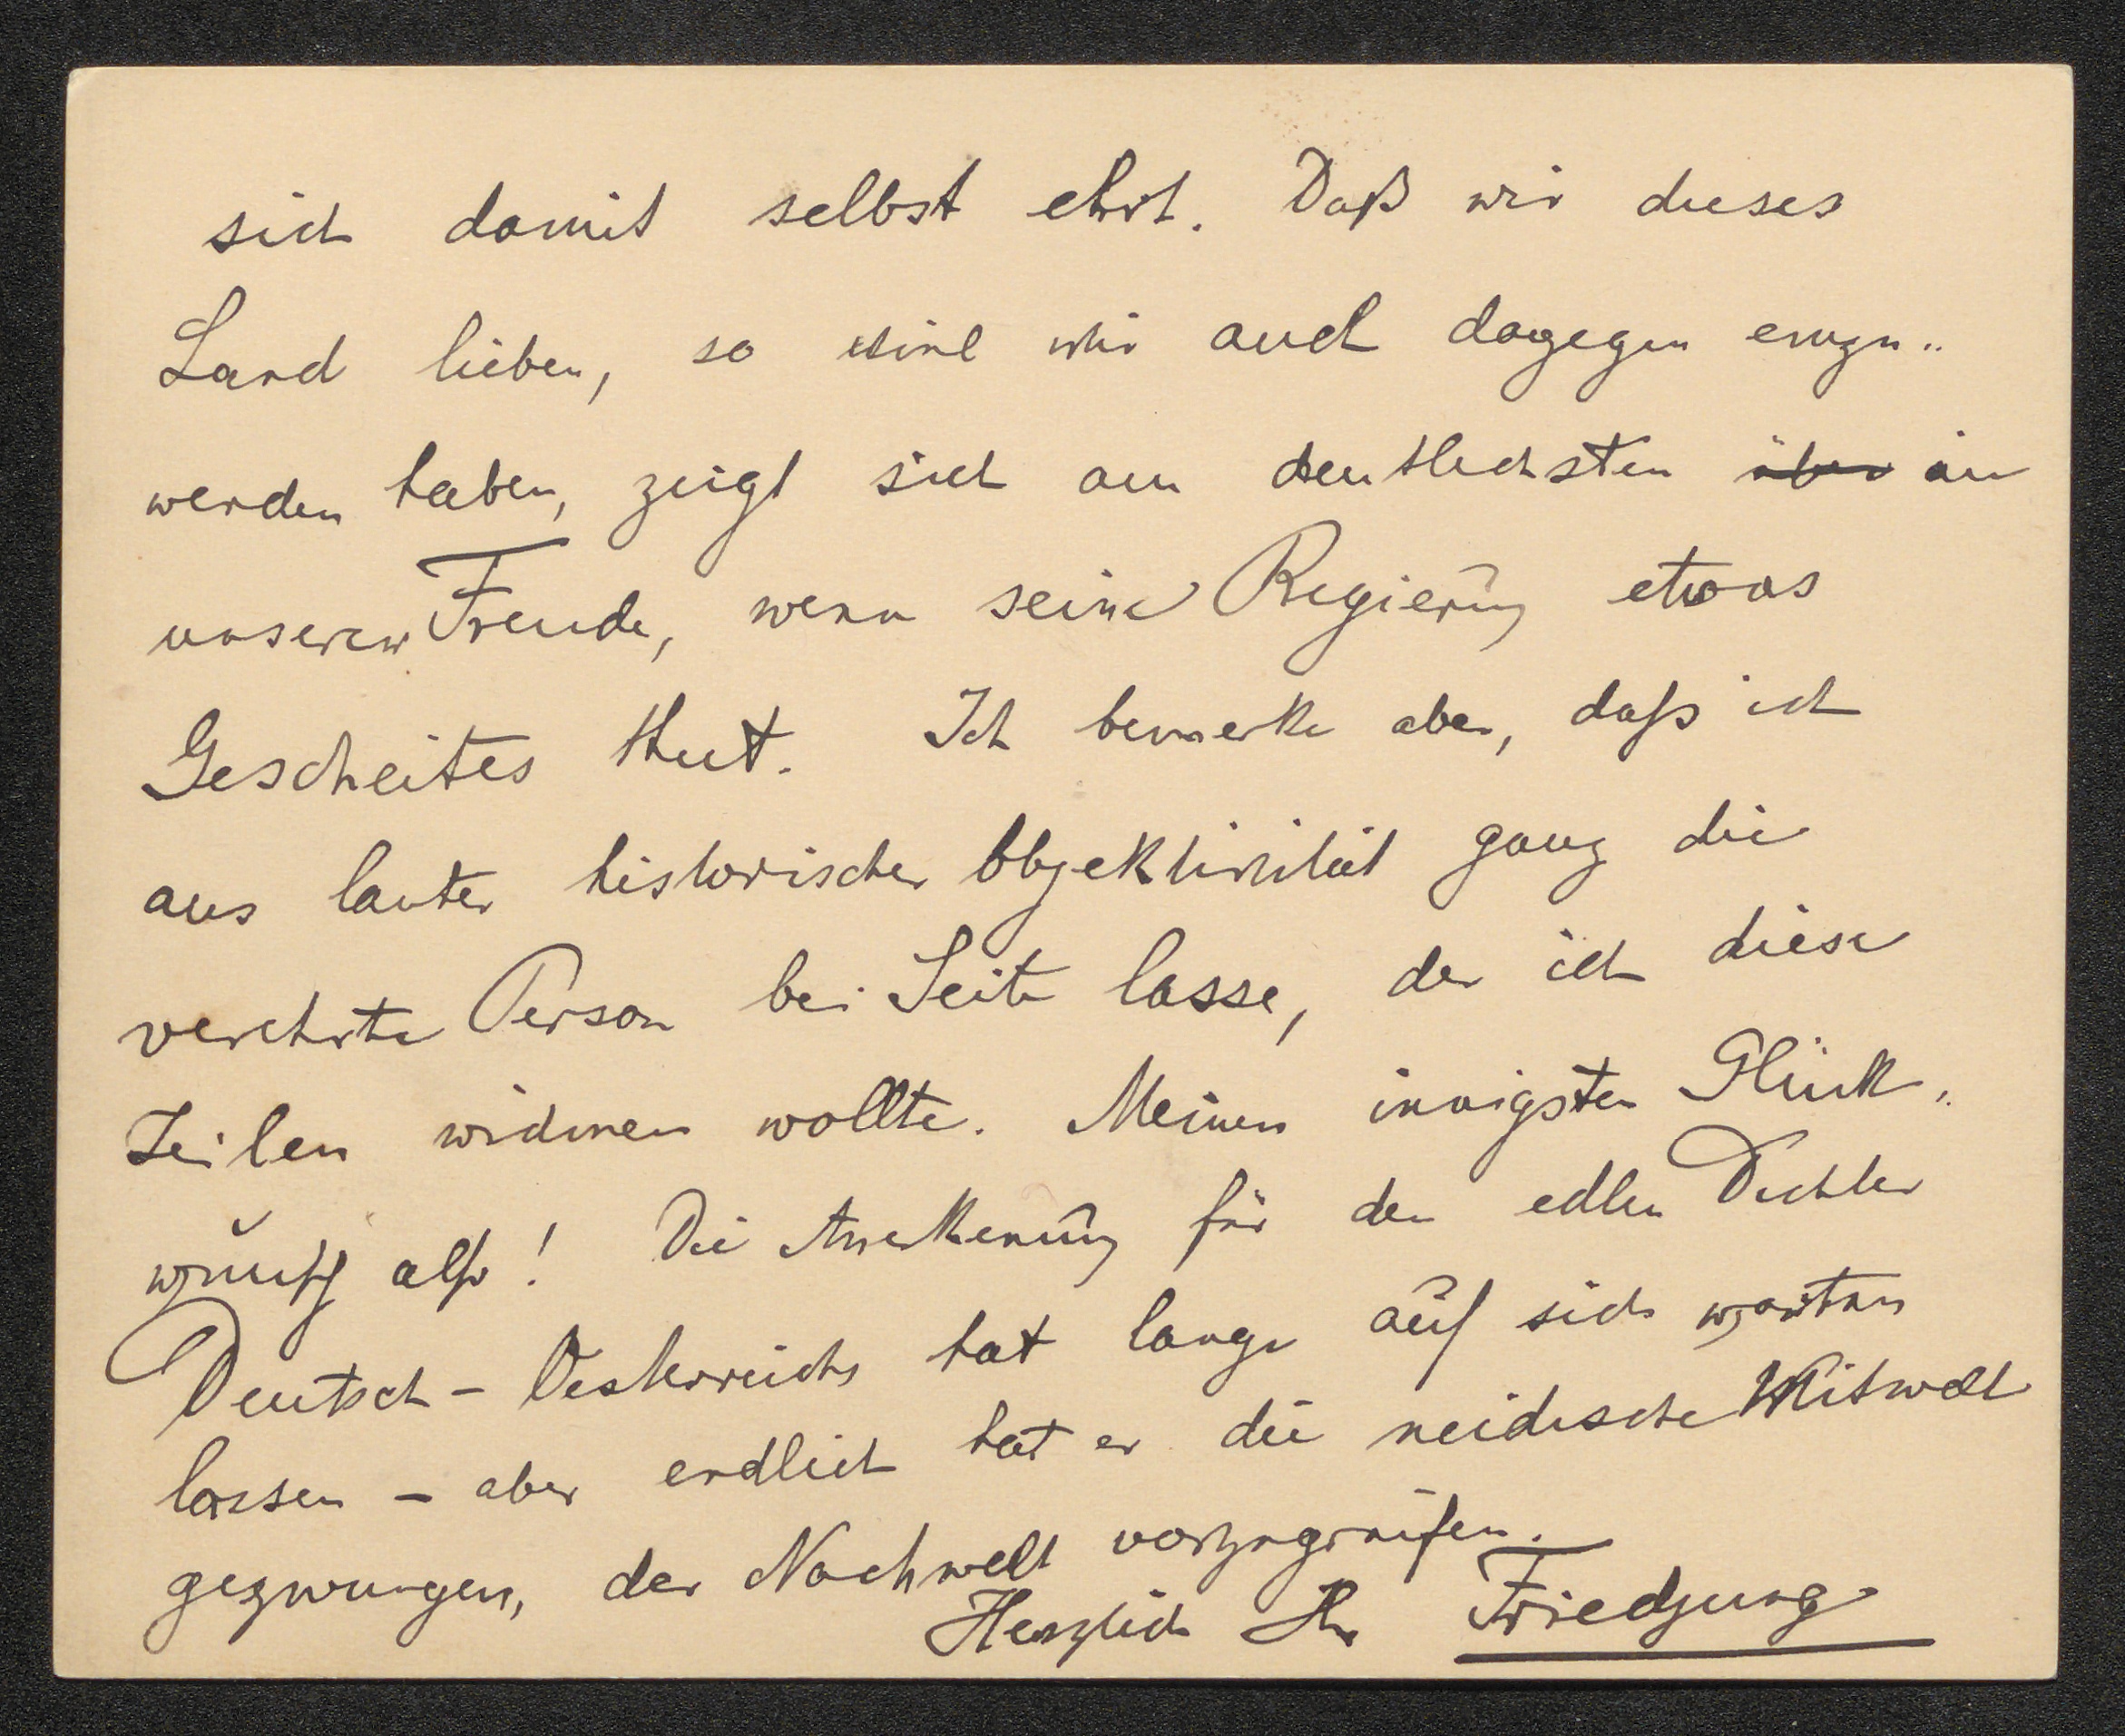 sich damit selbst ehrt. Daß wir dieses
Land lieben, so viel wir auch dagegen einzu-
wenden haben, zeigt sich am deutlichsten über in
unserer Freude, wenn seine Regierung etwas
Gescheites thut. Ich bemerke aber, daß ich
aus lauter historischer Objektivität ganz die
verehrte Person bei Seite lasse, der ich diese
Zeilen widmen wollte. Meinen innigsten Glück-
wunsch also! Die Anerkennung für den edlen Dichter
Deutsch-Oesterreichs hat lange auf sich warten
lassen – aber endlich hat er die neidische Mitwelt
gezwungen, der Nachwelt vorzugreifen.
Herzlich Ihr Friedjung